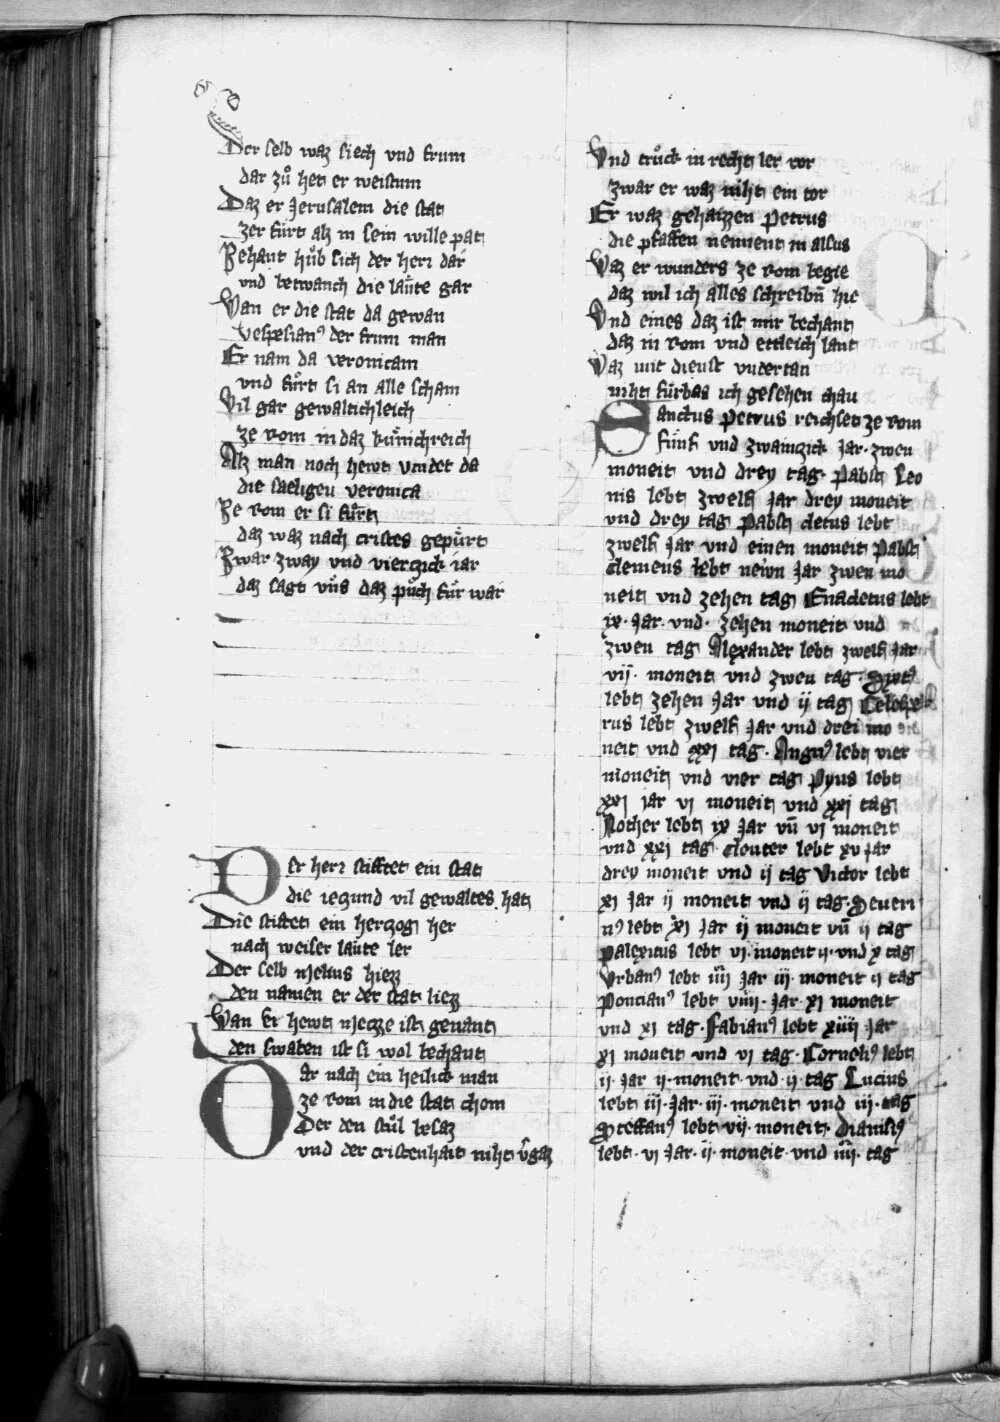 Der selb waz siech vnd frum
dar zuͦ het er weistum
Daz er Jerusalem die stat
zer fuͤrt alz in sein wille pat
Zehant huͦb sich der herr dar
vnd betwanch die laͤute gar
Wan er die stat da gewan
Vespesianꝰ der frum man
Er nam da veronicam
vnd fuͤrt si an alle scham
Vil gar gewaltichleich
ze rom in daz kuͤnichreich
Alz man noch hewt vindet da
die saeligen veronica
Ze rom er si fuͤrt
daz waz nach cristes gepuͤrt
Zwar zway vnd vierczick iar
daz sagt vns daz puͦch fuͤr war
Der herr stifftet ein stat
die iegund vil gewaltes hat
Die stiftet ein herczog her
nach weiser laͤute ler
Der selb Mecius hiez
den namen er der stat liez
Wan er hewt Mecze ist genant
den swaben ist si wol bechant
Dar nach ein heilick man
ze rom in die stat chom
Der den stuͦl besaz
vnd der cristenhait niht v̄gaz
Vnd truͦck in recht ler vor
zwar er waz niht ein tor
Er waz gehaizzen Petrus
die pfaffen nennent in alsus
Waz er wunders ze rom begie
daz wil ich alles schreibn̄ hie
Vnd eines daz ist mir bechant
daz in rom vnd ettleich lant
Waz mit dienst vndertan
niht fuͤrbas ich gesehen chan
Sanctus Petrus reichset ze rom
fuͤnf vnd zwainczick Jar. zwen
moneit vnd drey tag. Pabst Leo
nis lebt zwelf Jar drey moneit
vnd drey tag Pabst cletus lebt
zwelf Jar vnd einen moneit Pabst
Clemens lebt newn Jar zwen mo
neit vnd zehen tag Enacletus lebt
ix. Jar. vnd. zehen moneit vnd
zwen tag Alexander lebt zwelf Jar
vij. moneit vnd zwen tag. Sixtꝰ
lebt zehen Jar vnd ij tag
rus lebt zwelf Jar vnd drei mo
neit vnd xxj tag. lebt vier
moneit vnd vier tag Pyus lebt
xxj iar vj moneit vnd xxj tag
Nother lebt ix Jar vn̄ vj moneit
vnd xxj tag lebt xv jar
drey moneit vnd ij tag Victor lebt
xj Jar ij moneit vnd ij tag. Seueri
nꝰ lebt xj Jar ij moneit vn̄ ij tag
Palexitus lebt vj. moneit ij. vnd x tag
Vrbanꝰ lebt iiij Jar iij. moneit ij tag
Poncianꝰ lebt viiij. Jar. xj moneit
vnd xj tag. Fabianꝰ lebt xiiij Jar
xj moneit vnd vj tag. Corneliꝰ lebt
ij. Jar ij. moneit. vnd. ij. tag Lucius
lebt iij. Jar. iij. moneit vnd iij. tag
Steffanꝰ lebt vij. moneit.
lebt. vj Jar. ij. moneit. vnd iiij. tag